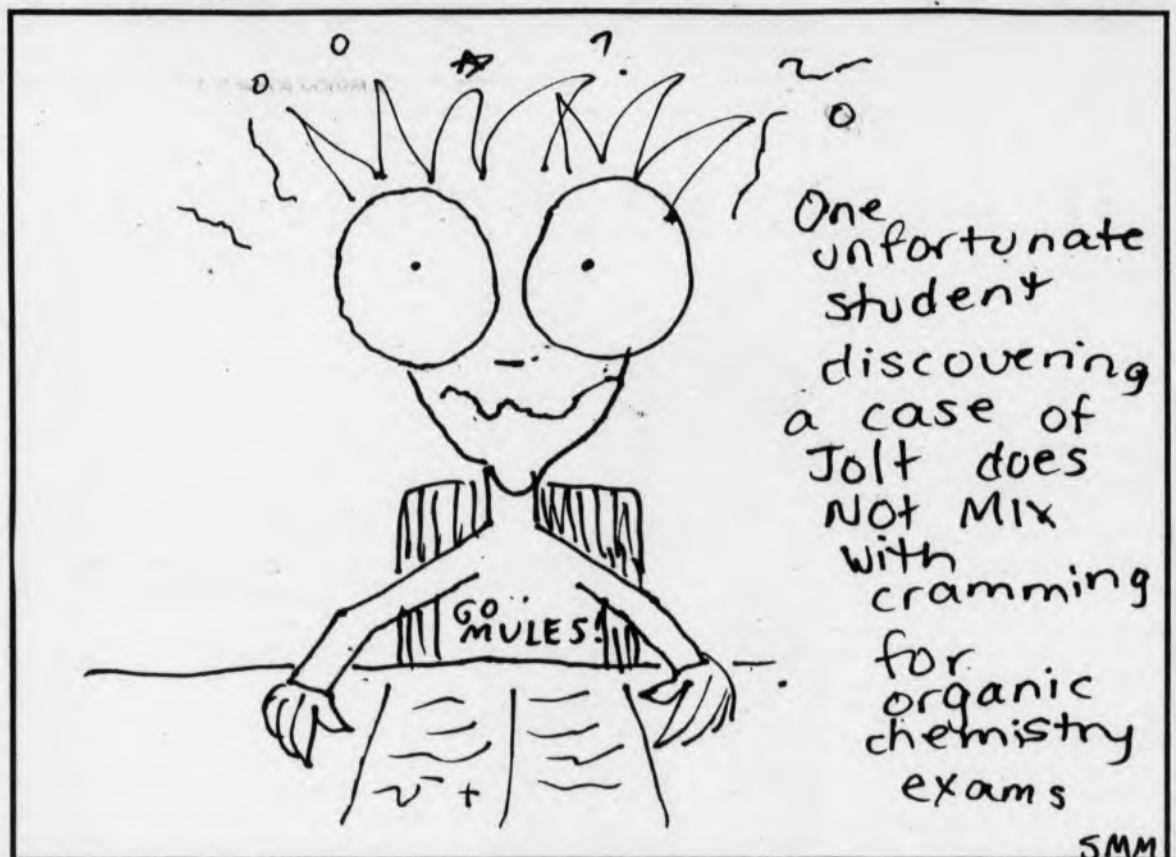 GO
MULES!
One
unfortunate
student
discovering
a case of
Jolt does
Not Mix
with
cramming
for
organic
chemistry
exams
SMM